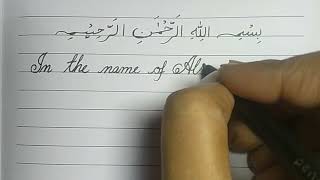 بِسْمِ اللهِ الرَّحْمٰنِ الرَّحِيْمِ
In the name of All